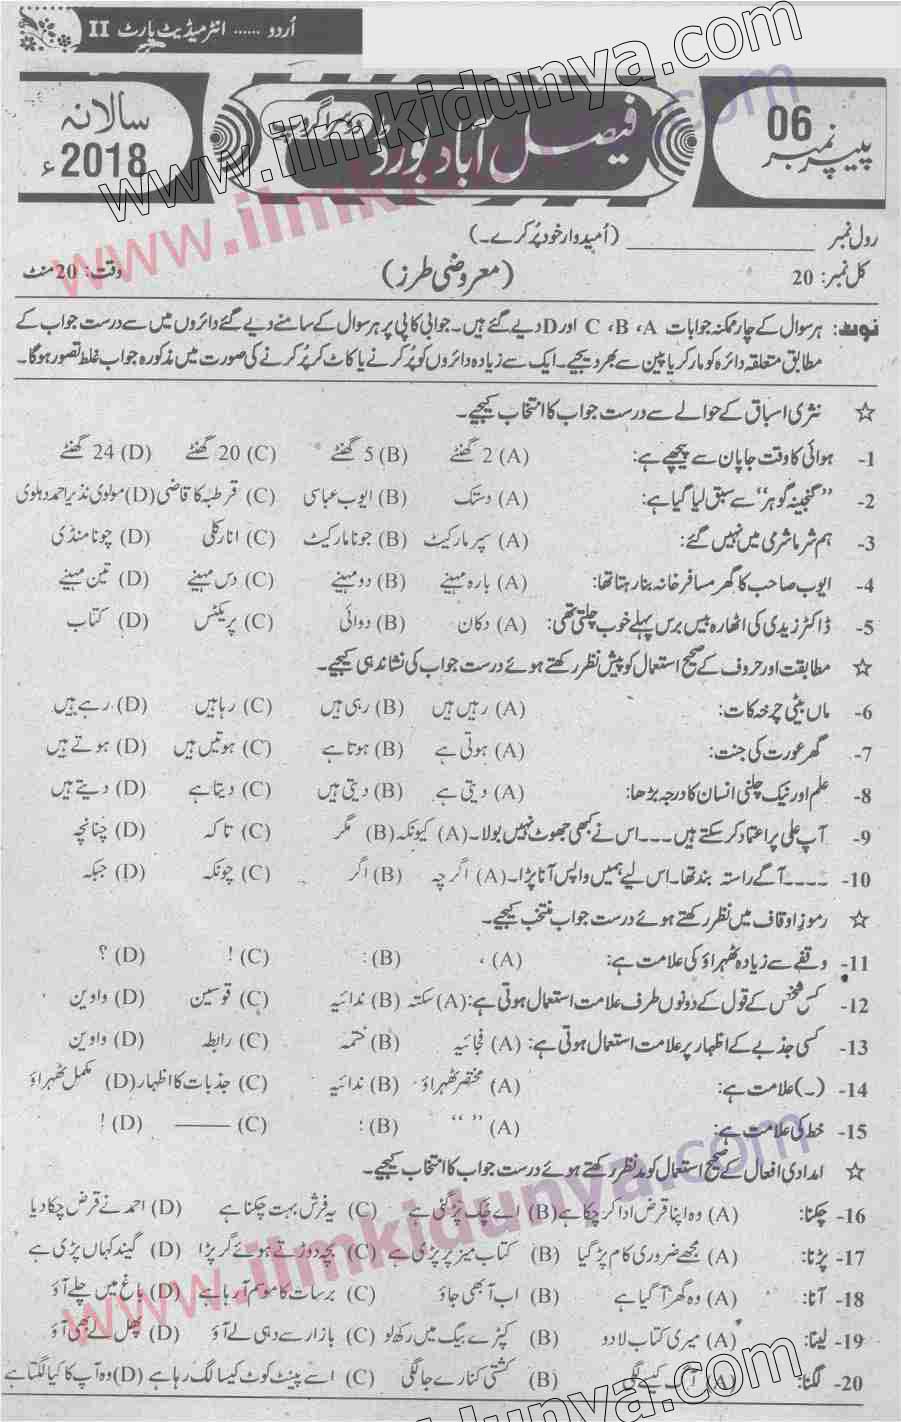 اُردو ...... انٹرمیڈیٹ پارٹ II
پیپر نمبر 06
فیصل آباد بورڈ
دوسرا گروپ
سالانہ 2018ء
www.ilmkidunya.com
رول نمبر ____________ (اُمیدوار خود پُر کرے۔)
کل نمبر: 20 (معروضی طرز) وقت: 20 منٹ
نوٹ: ہر سوال کے چار ممکنہ جوابات A، B، C اور D دیے گئے ہیں۔ جوابی کاپی پر ہر سوال کے سامنے دیے گئے دائروں میں سے درست جواب کے
مطابق متعلقہ دائرہ کو مارکر یا پین سے بھر دیجیے۔ ایک سے زیادہ دائروں کو پُر کرنے یا کاٹ کر پُر کرنے کی صورت میں مذکورہ جواب غلط تصور ہوگا۔
☆ نثری اسباق کے حوالے سے درست جواب کا انتخاب کیجیے۔
1- ہوائی کا وقت جاپان سے پیچھے ہے: (A) 2 گھنٹے (B) 5 گھنٹے (C) 20 گھنٹے (D) 24 گھنٹے
2- ”گنجینۂ گوہر“ سے سبق لیا گیا ہے: (A) دستک (B) ایوب عباسی (C) قرطبہ کا قاضی (D) مولوی نذیر احمد دہلوی
3- ہم شرما شرمی میں نہیں گئے: (A) سپر مارکیٹ (B) جونا مارکیٹ (C) انارکلی (D) چونا منڈی
4- ایوب صاحب کا گھر مسافر خانہ بنا رہتا تھا: (A) بارہ مہینے (B) دو مہینے (C) دس مہینے (D) تین مہینے
5- ڈاکٹر زیدی کی اٹھارہ بیس برس پہلے خوب چلتی تھی: (A) دکان (B) دوائی (C) پریکٹس (D) کتاب
☆ مطابقت اور حروف کے صحیح استعمال کو پیش نظر رکھتے ہوئے درست جواب کی نشاندہی کیجیے۔
6- ماں بیٹی چرخہ کات: (A) رہیں ہیں (B) رہی ہیں (C) رہا ہیں (D) رہے ہیں
7- گھر عورت کی جنت: (A) ہوتی ہے (B) ہوتا ہے (C) ہوتیں ہیں (D) ہوتے ہیں
8- علم اور نیک چلنی انسان کا درجہ بڑھا: (A) دیتی ہے (B) دیتی ہیں (C) دیتا ہے (D) دیتے ہیں
9- آپ علی پر اعتماد کر سکتے ہیں --- اس نے کبھی جھوٹ نہیں بولا۔ (A) کیونکہ (B) مگر (C) تاکہ (D) چنانچہ
10- ---- آگے راستہ بند تھا۔ اس لیے ہمیں واپس آنا پڑا۔ (A) اگرچہ (B) اگر (C) چونکہ (D) جبکہ
☆ رموزِ اوقاف میں نظر رکھتے ہوئے درست جواب منتخب کیجیے۔
11- وقفے سے زیادہ ٹھہراؤ کی علامت ہے: (A) ، (B) : (C) ! (D) ؟
12- کسی شخص کے قول کے دونوں طرف علامت استعمال ہوتی ہے: (A) سکتہ (B) ندائیہ (C) قوسین (D) واوین
13- کسی جذبے کے اظہار پر علامت استعمال ہوتی ہے: (A) فجائیہ (B) ختمہ (C) رابطہ (D) واوین
14- (۔) علامت ہے: (A) مختصر ٹھہراؤ (B) ندائیہ (C) جذبات کا اظہار (D) مکمل ٹھہراؤ
15- خط کی علامت ہے: (A) “ ” (B) : (C) —— (D) !
☆ امدادی افعال کے صحیح استعمال کو مدنظر رکھتے ہوئے درست جواب کا انتخاب کیجیے۔
16- چکنا: (A) وہ اپنا قرض ادا کر چکا ہے (B) اے چک پڑ گئی ہے (C) یہ فرش بہت چکنا ہے (D) احمد نے قرض چکا دیا
17- پڑنا: (A) مجھے ضروری کام پڑ گیا (B) کتاب میز پر پڑی ہے (C) بچہ دوڑتے ہوئے گر پڑا (D) گیند کہاں پڑی ہے
18- آنا: (A) وہ گھر آ گیا ہے (B) اب آ بھی جاؤ (C) برسات کا موسم آ رہا ہے (D) باغ میں چلے آؤ
19- لینا: (A) میری کتاب لا دو (B) کپڑے بیگ میں رکھ لو (C) بازار سے دہی لے آؤ (D) پھل لے بھی آؤ
20- لگنا: (A) آگ کیسے لگی (B) کشتی کنارے جا لگی (C) اسے پینٹ کوٹ کیسا لگ رہا ہے (D) وہ آپ کا کیا لگتا ہے
www.ilmkidunya.com